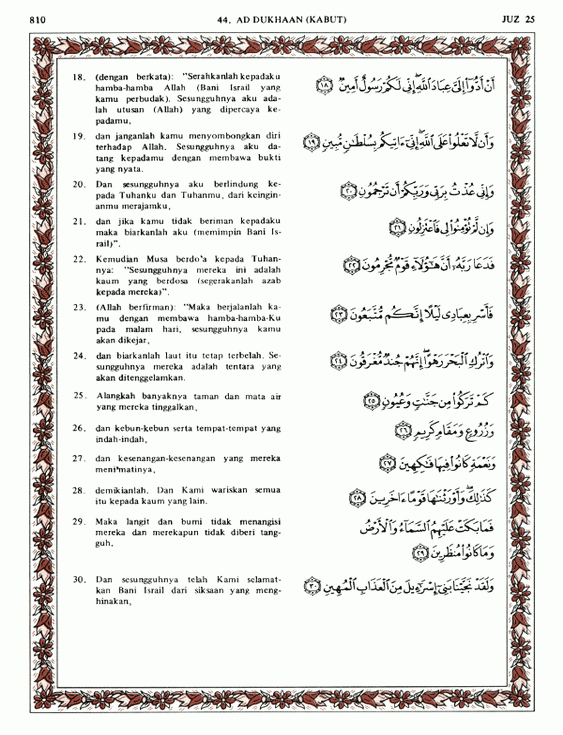 810
44. AD DUKHAAN (KABUT)
JUZ 25
18. (dengan berkata): "Serahkanlah kepadaku
hamba-hamba Allah (Bani Israil yang
kamu perbudak). Sesungguhnya aku ada-
lah utusan (Allah) yang dipercaya ke-
padamu,
أَنْ أَدُّوٓا۟ إِلَىَّ عِبَادَ ٱللَّهِ إِنِّى لَكُمْ رَسُولٌ أَمِينٌ ١٨
19. dan janganlah kamu menyombongkan diri
terhadap Allah. Sesungguhnya aku da-
tang kepadamu dengan membawa bukti
yang nyata.
وَأَن لَّا تَعْلُوا۟ عَلَى ٱللَّهِ إِنِّىٓ ءَاتِيكُم بِسُلْطَٰنٍ مُّبِينٍ ١٩
20. Dan sesungguhnya aku berlindung ke-
pada Tuhanku dan Tuhanmu, dari keingin-
anmu merajamku,
وَإِنِّى عُذْتُ بِرَبِّى وَرَبِّكُمْ أَن تَرْجُمُونِ ٢٠
21. dan jika kamu tidak beriman kepadaku
maka biarkanlah aku (memimpin Bani Is-
rail)".
وَإِن لَّمْ تُؤْمِنُوا۟ لِى فَٱعْتَزِلُونِ ٢١
22. Kemudian Musa berdo'a kepada Tuhan-
nya: "Sesungguhnya mereka ini adalah
kaum yang berdosa (segerakanlah azab
kepada mereka)".
فَدَعَا رَبَّهُۥٓ أَنَّ هَٰٓؤُلَآءِ قَوْمٌ مُّجْرِمُونَ ٢٢
23. (Allah berfirman): "Maka berjalanlah ka-
mu dengan membawa hamba-hamba-Ku
pada malam hari, sesungguhnya kamu
akan dikejar,
فَأَسْرِ بِعِبَادِى لَيْلًا إِنَّكُم مُّتَّبَعُونَ ٢٣
24. dan biarkanlah laut itu tetap terbelah. Se-
sungguhnya mereka adalah tentara yang
akan ditenggelamkan.
وَٱتْرُكِ ٱلْبَحْرَ رَهْوًا إِنَّهُمْ جُندٌ مُّغْرَقُونَ ٢٤
25. Alangkah banyaknya taman dan mata air
yang mereka tinggalkan,
كَمْ تَرَكُوا۟ مِن جَنَّٰتٍ وَعُيُونٍ ٢٥
26. dan kebun-kebun serta tempat-tempat yang
indah-indah,
وَزُرُوعٍ وَمَقَامٍ كَرِيمٍ ٢٦
27. dan kesenangan-kesenangan yang mereka
menikmatinya,
وَنَعْمَةٍ كَانُوا۟ فِيهَا فَٰكِهِينَ ٢٧
28. demikianlah. Dan Kami wariskan semua
itu kepada kaum yang lain.
كَذَٰلِكَ وَأَوْرَثْنَٰهَا قَوْمًا ءَاخَرِينَ ٢٨
29. Maka langit dan bumi tidak menangisi
mereka dan merekapun tidak diberi tang-
guh,
فَمَا بَكَتْ عَلَيْهِمُ ٱلسَّمَآءُ وَٱلْأَرْضُ
وَمَا كَانُوا۟ مُنظَرِينَ ٢٩
30. Dan sesungguhnya telah Kami selamat-
kan Bani Israil dari siksaan yang meng-
hinakan,
وَلَقَدْ نَجَّيْنَا بَنِىٓ إِسْرَٰٓءِيلَ مِنَ ٱلْعَذَابِ ٱلْمُهِينِ ٣٠